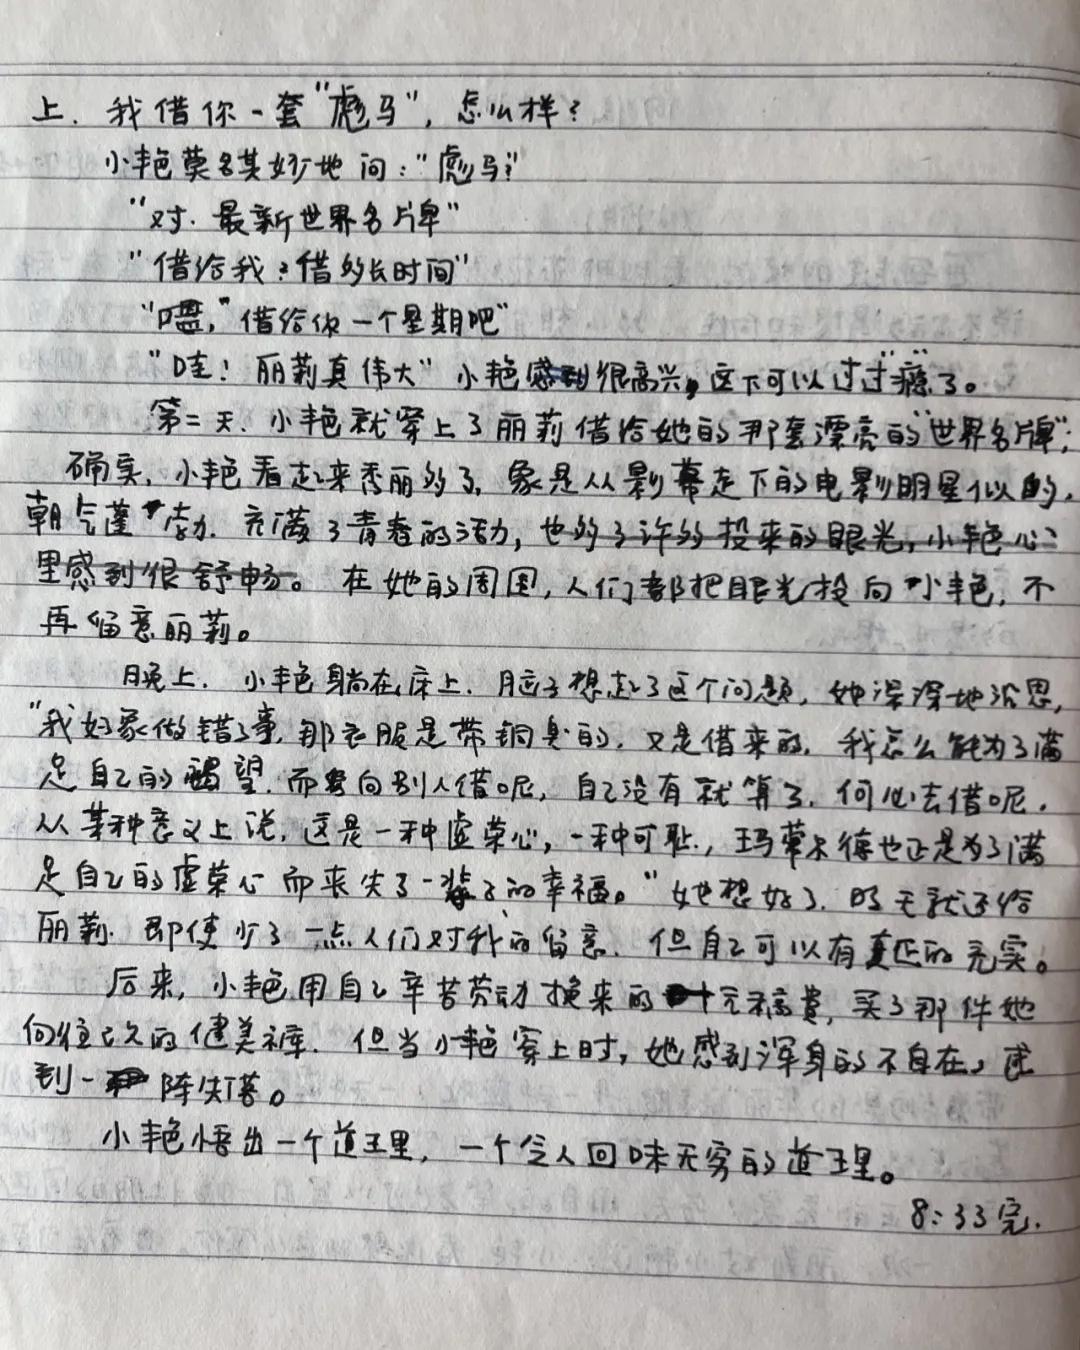 上. 我借你一套"彪马", 怎么样?
小艳莫名其妙地问: "彪马?"
"对. 最新世界名片牌"
"借给我? 借多长时间"
"嗯," 借给你一个星期吧"
"哇! 丽莉真伟大" 小艳感到很高兴, 这下可以过过"瘾"了。
第二天. 小艳就穿上了丽莉借给她的那套漂亮的"世界名牌";
确实, 小艳看起来秀丽多了, 象是从影幕走下的电影明星似的,
朝气蓬勃. 充满了青春的活力, 也多了许多投来的眼光, 小艳心
里感到很舒畅。在她的周围, 人们都把眼光投向小艳, 不
再留意丽莉。
晚上. 小艳躺在床上. 脑子想起了这个问题, 她深深地沉思,
"我好象做错了事, 那衣服是带铜臭的, 又是借来的, 我怎么能为了满
足自己的渴望, 而要向别人借呢, 自己没有就算了, 何必去借呢.
从某种意义上说, 这是一种虚荣心, 一种可耻, 玛蒂尔德也正是为了满
足自己的虚荣心而丧失了一辈子的幸福。"她想好了. 明天就还给
丽莉. 即使少了一点人们对我的留意. 但自己可以有真正的充实。
后来, 小艳用自己辛苦劳动换来的十元稿费, 买了那件她
向往已久的健美裤. 但当小艳穿上时, 她感到浑身的不自在, 感
到一阵失落。
小艳悟出一个道理, 一个令人回味无穷的道理。
8:33完.